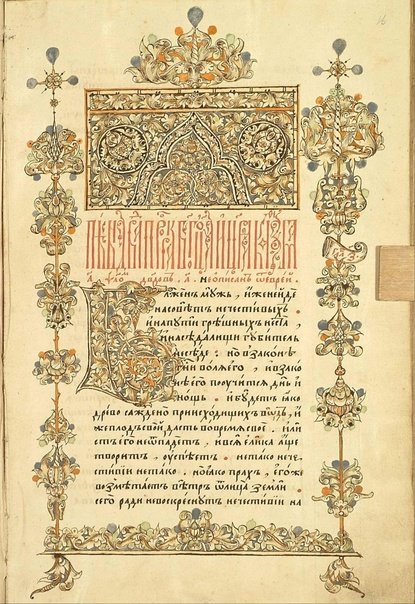 а҃ ѱало҃ двдовъ . а҃ . неописанъ ѿеврей
Блаженъ мужь , иженеиде
насовѣтъ нечестивыхъ .
инапути грѣшныхъ неста ,
инасѣдалищи губитель
несѣде : но взаконѣ
гн҃и волѧего , ивзако
нѣего поучитсѧ дн҃ь и
нощь . ибудетъ ꙗко
древо саждено приисходищихъ водъ , и
жеплодъсвой дасть вовремѧсвое . илис
тъего неѿпадетъ , ивсѧ елика аще
творитъ , оуспѣетъ . нетако нече
стивїи нетако . ноꙗко прахъ , егоже
возметаетъ вѣтръ ѿлица земли .
сего ради невоскреснутъ нечестивїи на